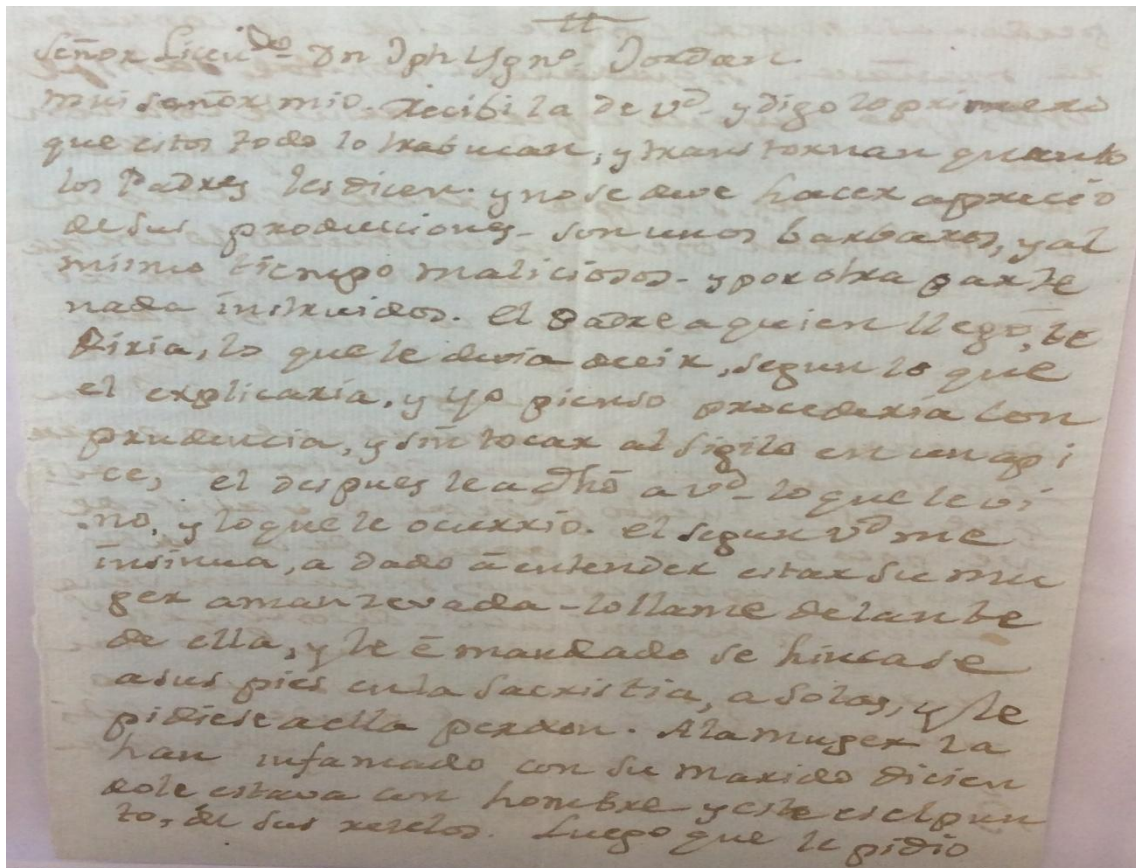 Señor Licendo Dn Jph Ygno. Jordan.
mui señor mio. recibi la de vd. y digo lo primero
que estos todo lo trabucan, y transtornan quanto
los Padres les dicen. y no se deve hacer aprecio
de sus producciones. son unos barbaros, y al
mismo tiempo maliciosos. y por otra parte
nada instruidos. el Padre a quien llegó, le
diria, lo que le devia decir, segun lo que
el explicaria, y yo pienso procederia con
prudencia, y sin tocar al sigilo en un api
ce, el despues le a dho a vd. lo que le vi
no, y lo que le ocurrio. el segun vd me
insinua, a dado á entender estar su mu
ger amancevada - lo llamé delante
de ella, y le é mandado se hincase
a sus pies en la sacristia, a solas, y le
pidiese a ella perdon. A la muger la
han infamado con su marido dicien
dole estava con hombre y este es el pun
to, de sus zelos. Luego que le pidio